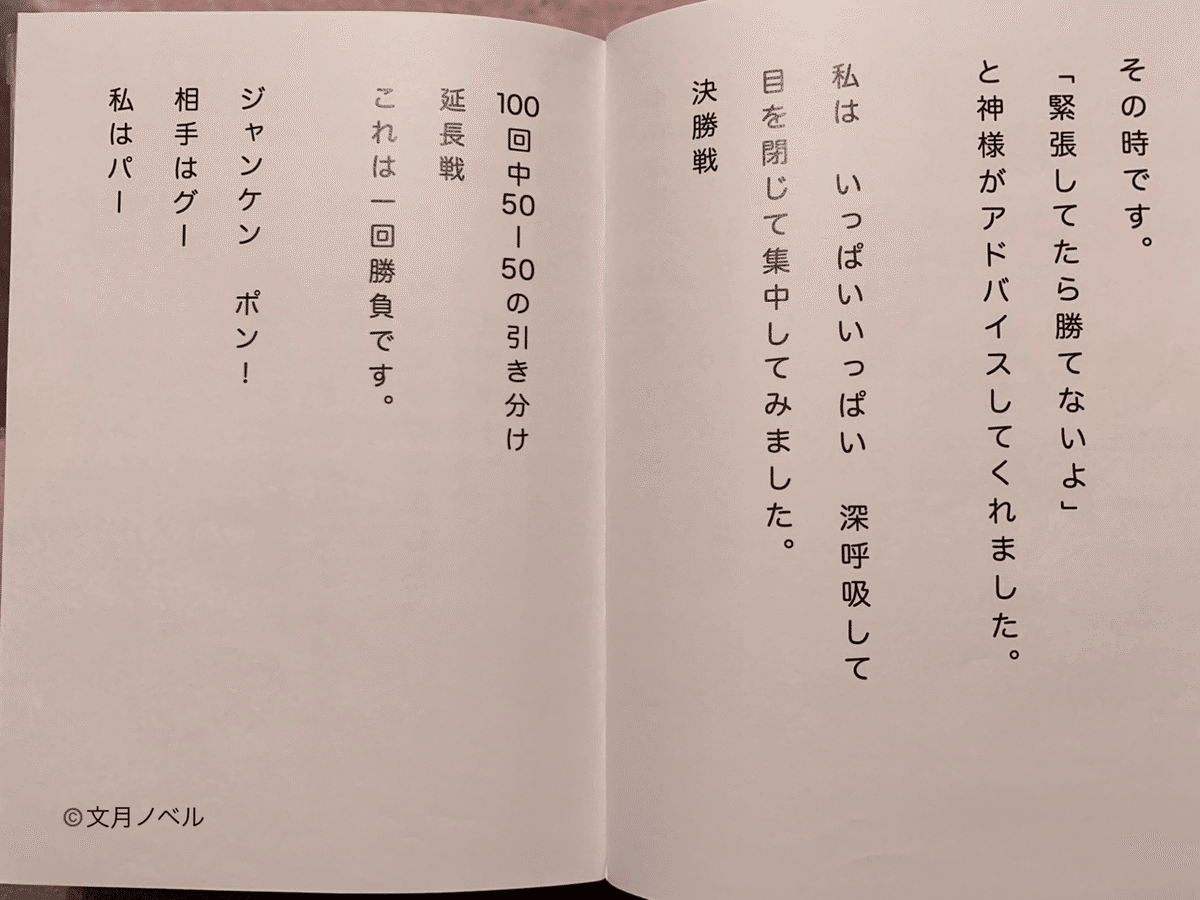 その時です。
「緊張してたら勝てないよ」
と神様がアドバイスしてくれました。
私は　いっぱいいっぱい　深呼吸して
目を閉じて集中してみました。
決勝戦
100回中50ー50の引き分け
延長戦
これは一回勝負です。
ジャンケン　ポン！
相手はグー
私はパー
©文月ノベル